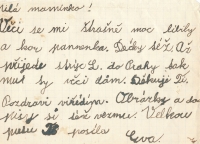 milá maminko!
Věci se mi strašně moc líbily
a kor panenka. Děcky síž. Až
přijede strýc L. do Prahy tak
mu ty věci dám. Děkuji Ti.
Pozdravi všechny. Obrázky a do
pisy si též vezmu. Velkou
pusu posílá
Eva.